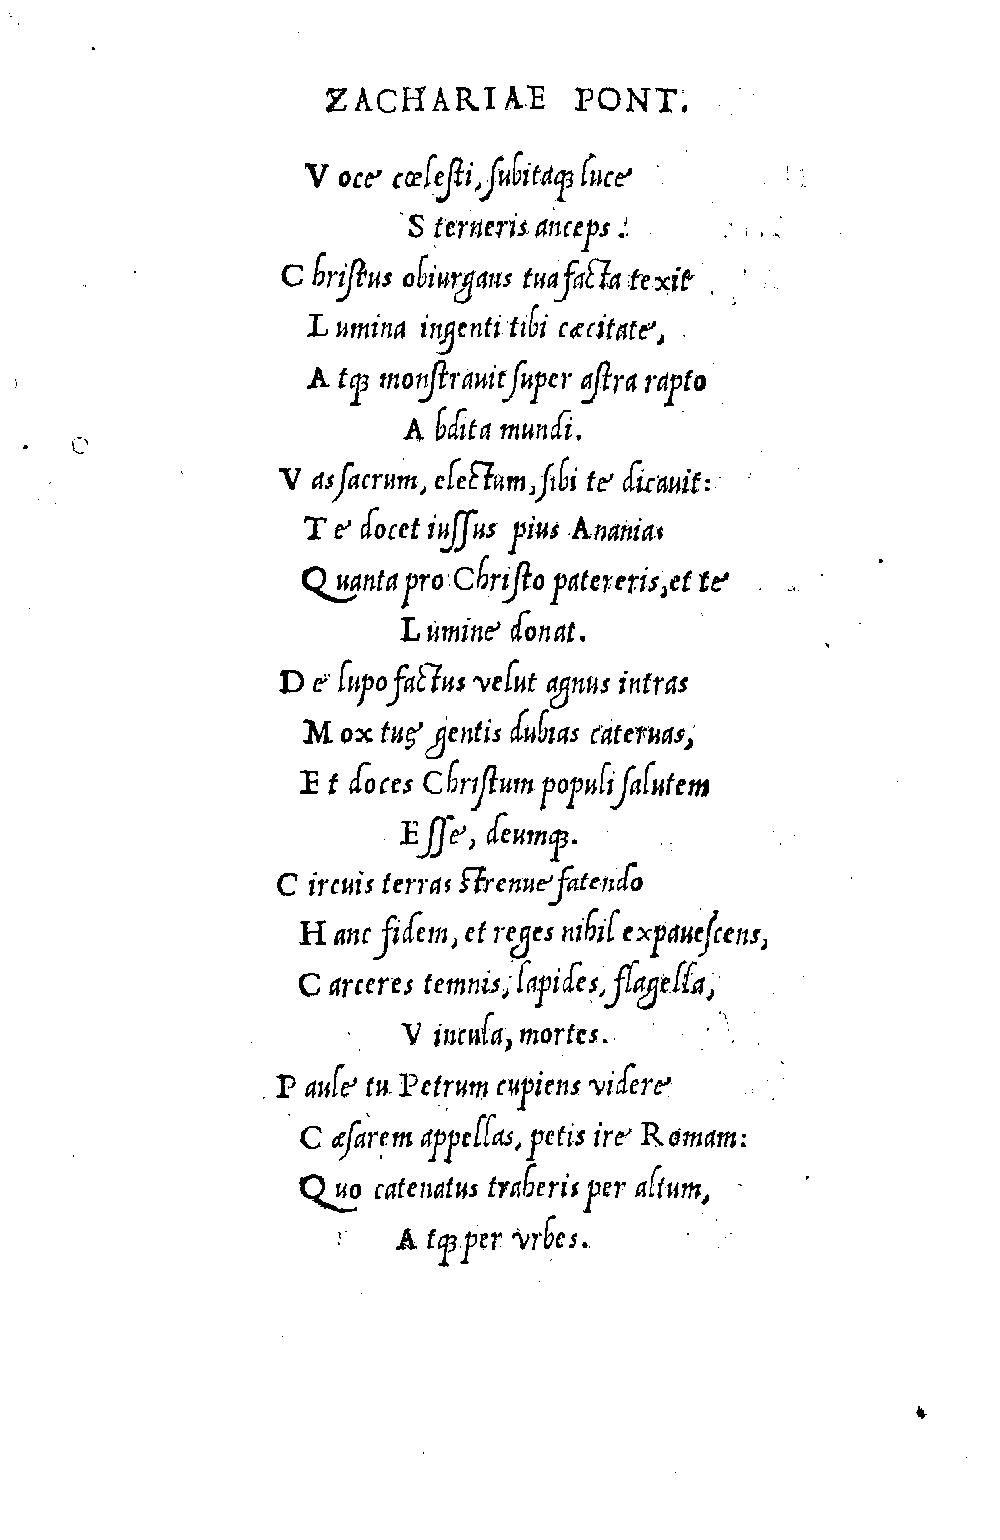 ZACHARIAE PONT.
Voce cœlesti, subitaq; luce
Sterneris anceps:
Christus obiurgans tua facta texit
Lumina ingenti tibi cæcitate,
Atq; monstrauit super astra rapto
Abdita mundi.
Vas sacrum, electum, sibi te dicauit:
Te docet iussus pius Ananias
Quanta pro Christo patereris, et te
Lumine donat.
De lupo factus velut agnus intras
Mox tuę gentis dubias cateruas,
Et doces Christum populi salutem
Esse, deumq;.
Circuis terras strenue fatendo
Hanc fidem, et reges nihil expauescens,
Carceres temnis, lapides, flagella,
Vincula, mortes.
Paule tu Petrum cupiens videre
Cæsarem appellas, petis ire Romam:
Quo catenatus traheris per altum,
Atq; per vrbes.